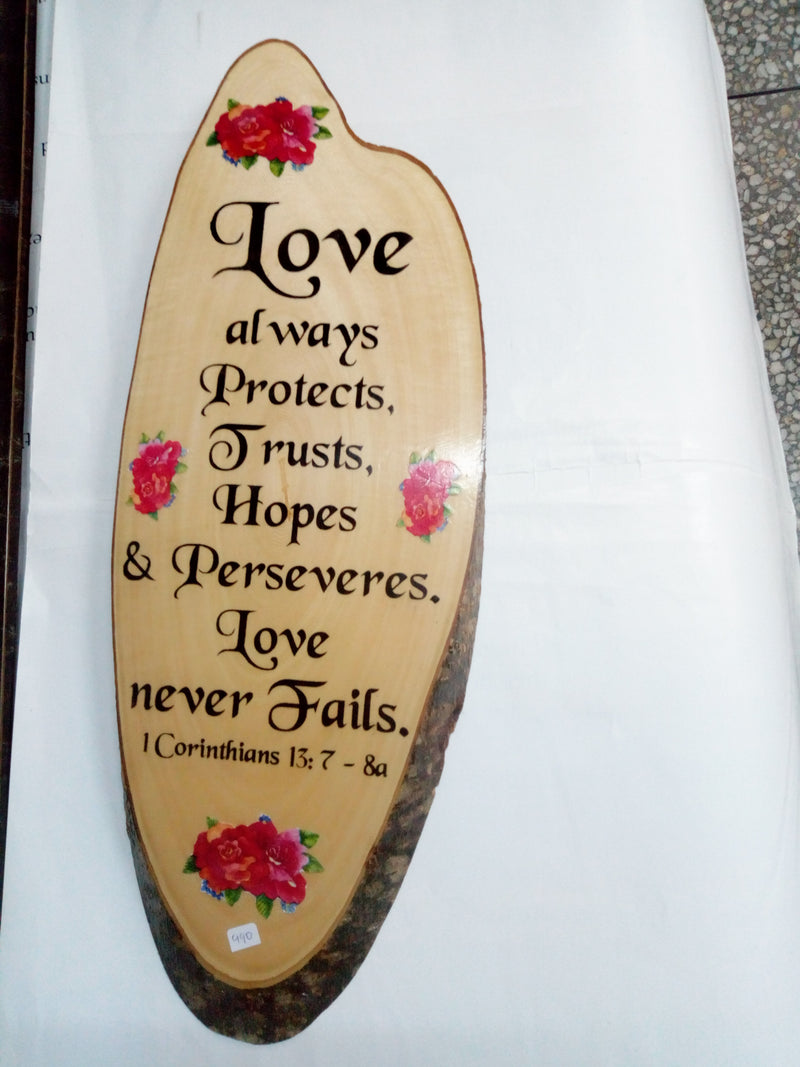 Love
always
Protects,
Trusts,
Hopes
& Perseveres.
Love
never Fails.
1 Corinthians 13: 7 - 8a